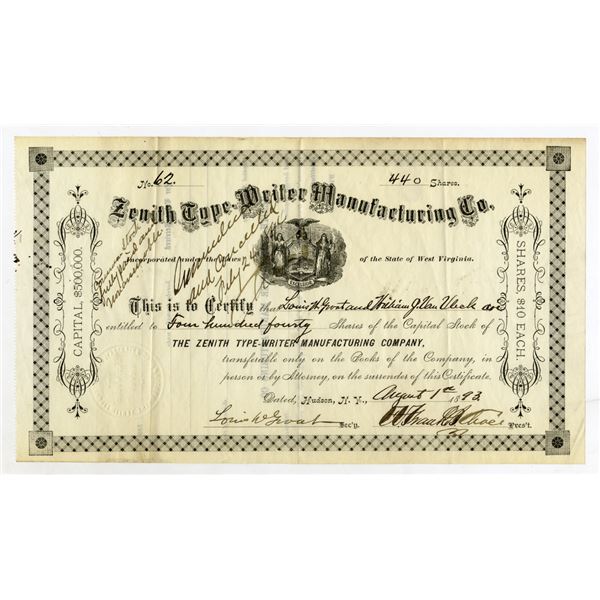 No. 62. 440 Shares.
Zenith Type-Writer Manufacturing Co.
Incorporated under the Laws of the State of West Virginia.
This is to Certify that Louis W. Groat and William J. Van Vleck are
entitled to Four hundred fourty Shares of the Capital Stock of
THE ZENITH TYPE-WRITER MANUFACTURING COMPANY,
transferable only on the Books of the Company, in
person or by Attorney, on the surrender of this Certificate.
Dated, Hudson, N. Y., August 1st 1893
Louis W. Groat Sec'y. Pres't.
CAPITAL, $500,000.
SHARES, $10 EACH.
and Cancelled
July 24